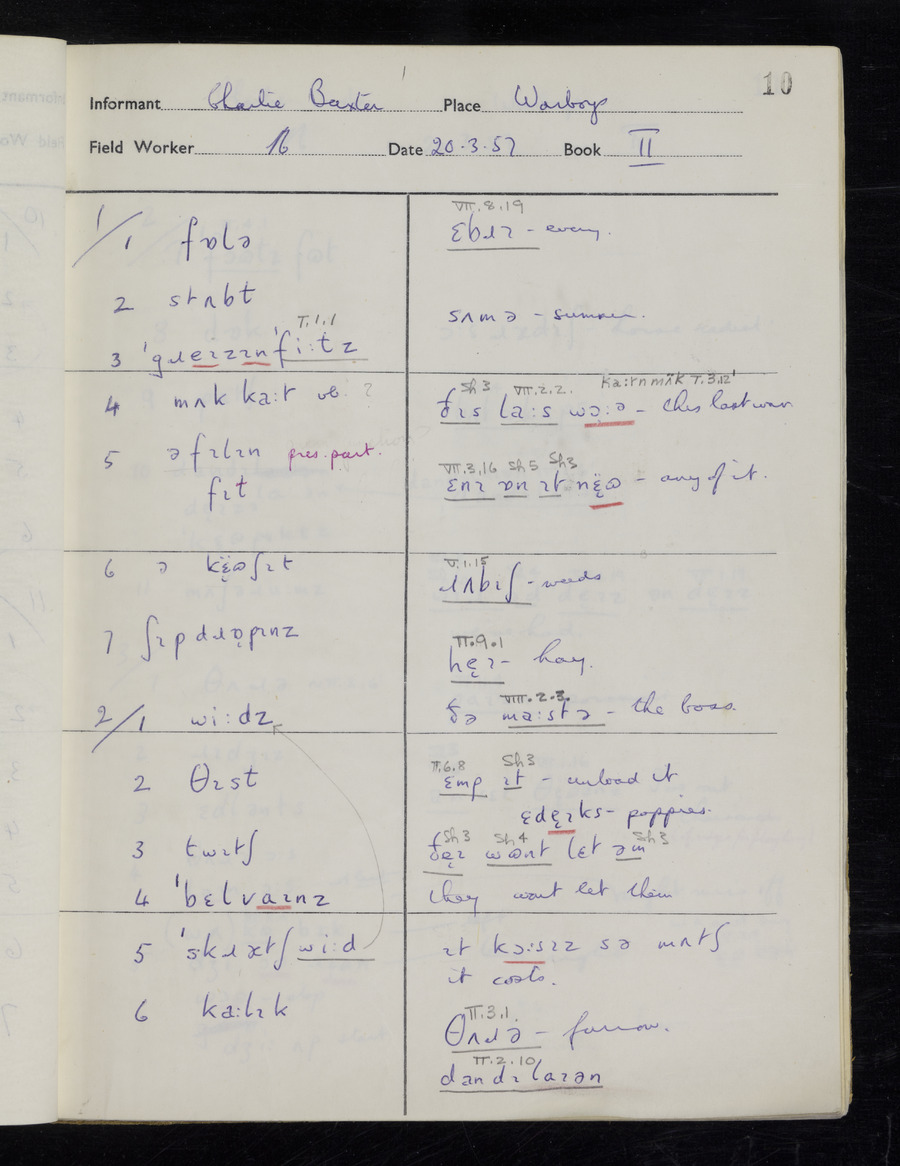 10
Informant Charlie Baxter Place Warboys
Field Worker Date 20.3.57 Book II
1/1 fɒlə
VII.8.19
ɛbɹɪ - every.
2 stʌbt
sʌmə - summer.
T.1.1
3 ˈgɹeɪzɪnˈfiːtz
kaːtn mʌ̈k T.3.12
Sh3 VII.2.2.
4 mʌk kaːt vb. ?
ðɪs laːs wɔːə - this last war
5 əfɪlɪn pres. part.
fɪt
VII.3,16 Sh5 Sh3
ɛnɪ ɒn ɪt - any of it.
6 ə
V.1.15
ɹʌbɪʃ - weeds
7 ʃɪp dɹɒ̝pɪnz
II.9.1
he̞ɪ - hay.
2/1 wiːdz
VIII.2.3.
ðə maːstə - the boss.
2 θɪst
II.6.8 Sh3
ɛmp ɪt - unload it
ɛde̞ɪks - poppies.
3 twɪtʃ
Sh3 Sh4 Sh3
ðe̞ɪ wɷnt lɛt əm
4 ˈbɛlvaɪnz
they wont let them
5 ˈskɹætʃwiːd
ɪt kɔːsɪz sə mʌtʃ
it costs.
6 kaːlɪk
II.3.1.
θʌɹə - furrow.
II.2.10
dandɪlaɪən